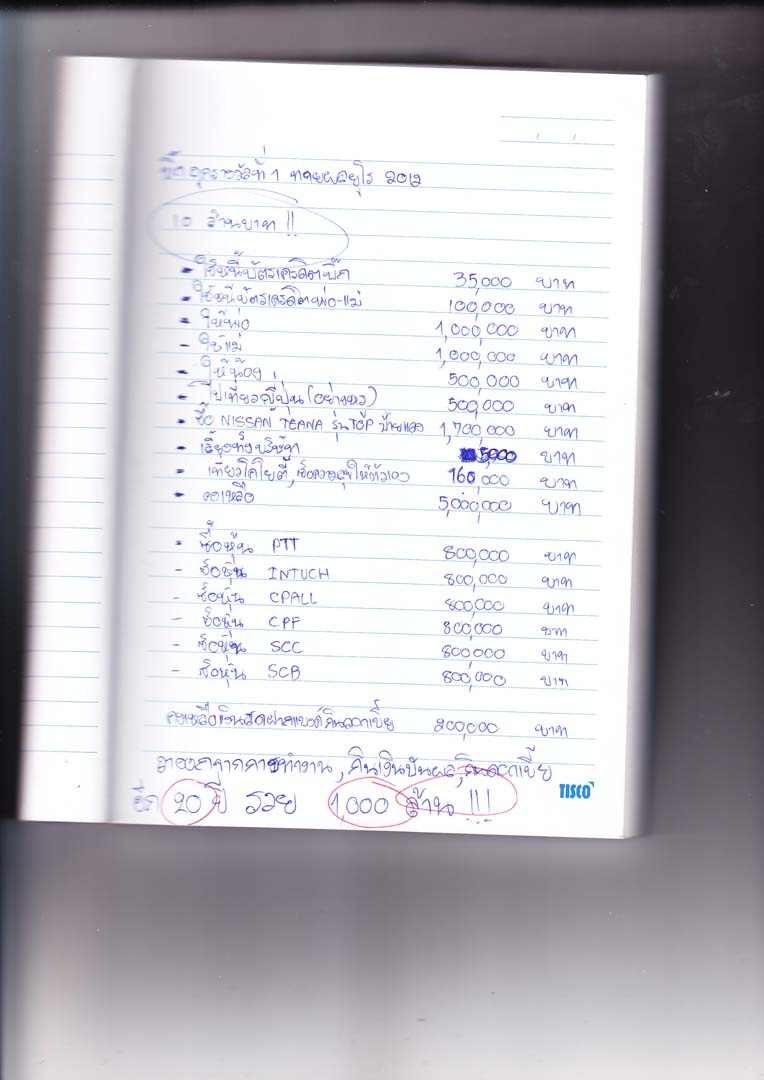 บิ๊กถูกรางวัลที่ 1 ทายผลยูโร 2012
10 ล้านบาท !!
- ใช้หนี้บัตรเครดิตบิ๊ก 35,000 บาท
- ใช้หนี้บัตรเครดิตพ่อ-แม่ 100,000 บาท
- ให้พ่อ 1,000,000 บาท
- ให้แม่ 1,000,000 บาท
- ให้น้อง 500,000 บาท
- ไปเที่ยวญี่ปุ่น (อย่างหรู) 500,000 บาท
- ซื้อ NISSAN TEANA รุ่น TOP ป้ายแดง 1,700,000 บาท
- เลี้ยงทั้งบริษัท 5,000 บาท
- เที่ยวโคโยตี้, ซื้อความสุขให้ตัวเอง 160,000 บาท
- คงเหลือ 5,000,000 บาท
- ซื้อหุ้น PTT 800,000 บาท
- ซื้อหุ้น INTUCH 800,000 บาท
- ซื้อหุ้น CPALL 800,000 บาท
- ซื้อหุ้น CPF 800,000 บาท
- ซื้อหุ้น SCC 800,000 บาท
- ซื้อหุ้น SCB 800,000 บาท
คงเหลือเงินสดฝากแบงค์กินดอกเบี้ย 200,000 บาท
ลาออกจากการทำงาน, กินเงินปันผล, กินดอกเบี้ย
อีก 20 ปี รวย 1,000 ล้าน !!!
TISCO